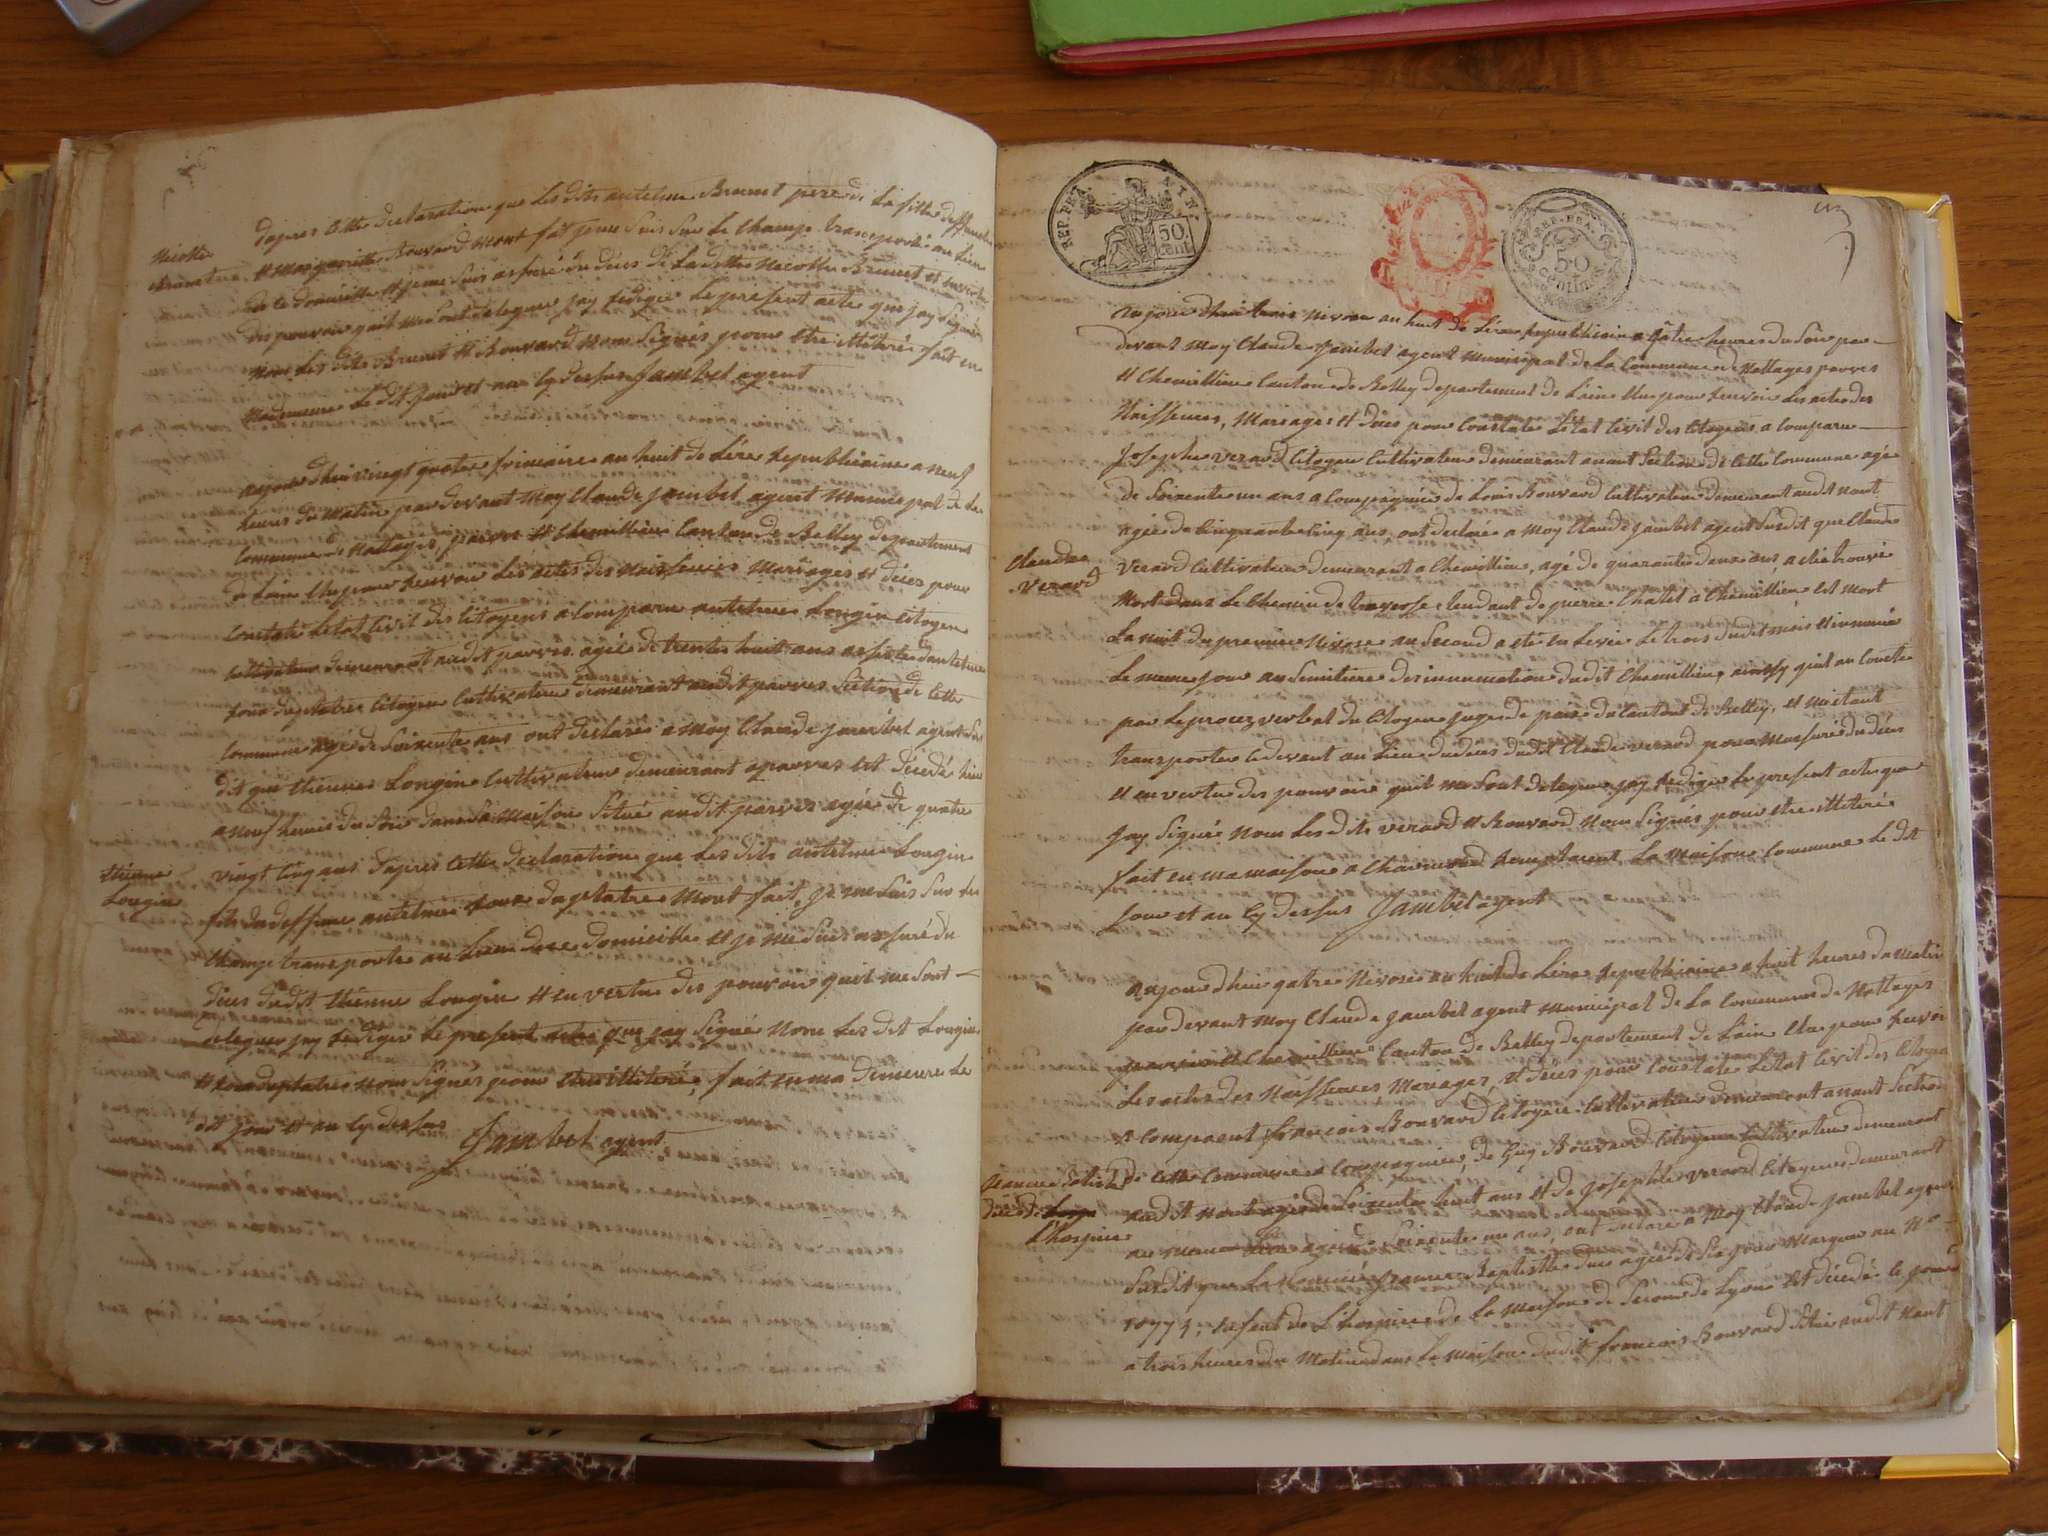 dapres cette declaration que les dits antelme Brunet pere de la fille deffunte
Nicolle
Brunet
et Margueritte Bouvard mont fait je me suis sur le champs transporté au lieu
de ce domicille et je me suis assuré du déces de laditte Nicolle Brunet et en vertu
des pouvoir quil me sont delegue jay redigée le present acte que jay signé
non les dits Brunet et Bouvard non signés pour etre illiterés fait en
Mademeure le dit jour et an cy dessus Jambet agent
aujourdhui vingt quatre frimaire an huit de Lère Republicaine a neuf
heures du Matin pardevant Moy Claude Jambet agent Municipal de la
Commune de Nattages parves et Chemillieu Canton de Belley departement
de Lain Elu pour recevoir les actes des Naissences Mariages et déces pour
Constaté Letat Civil des Citoyens a Comparu antelme Longin Citoyen
Cultivateur demeurant audit parves agée de trente huit ans assisté dantelme
Citoyen Cultivateur demeurant audit parves Section de Cette
Commune agé de Soixente ans ont declarés a Moy Claude Jambet agent Sus
dit que Etienne Longin Cultivateur demeurant a parves est décedé hier
a neuf heures du Soir dans sa Maison Situé audit parves agée de quatre
Etienne
Longin
vingt Cinq ans dapres Cette declaration que les dits antelme Longin
fils du deffunt antelme mont fait, je me suis sur le
champ transporte au lieu de ce domicille et je me suis assuré du
déces dudit Etienne Longin et en vertu des pouvoir quil me sont
delegue jay redigée le present acte que jay Signé Non les dit Longin
et non Signés pour etre illiteré, fait en ma demeure le
dit jour et an cy dessus
Jambet agent
REP. FRA.
50
cent
REP. FRA.
50
Centimes
aujourdhui trois nivose an huit de Lère Republicaine a quatre heures du Soir par
devant Moy Claude Jambet agent Municipal de La Commune de Nattages parves
et Chemillieu Canton de Belley departement de Lain Elu pour recevoir Les actes des
Naissences, Mariages et déces pour Constaté Letat Civil des Citoyens a Comparu
Josephe verard Citoyen Cultivateur demeurant a nant Section de Cette Commune agé
de Soixente un ans a Compagnée de Louis Bouvard Cultivateur demeurant audit nant
agée de Cinquante Cinq ans, ont declarée a Moy Claude Jambet agent Susdit que Claude
Claude
Verard
Verard Cultivateur demeurant a Chemillieu, agé de quarante deux ans, a été trouvé
Mort dans Le Chemin de traverse tendant de pierre Chatel a Chemillieu est Mort
La nuit du premier Nivose au Second a eté en Levée Le trois dudit mois et innumé
Le meme jour au Semitiere des innumation dudit Chemillieu, ainsy quil au Conste
par Le procez verbal du Citoyen juge de paix du Canton de Belley, et mestant
transporter cedevant au Lieu du déces dudit Claude verard pour massuré du déces
et en vertu des pouvoir quil me Sont delegue jay redigée Le present acte que
jay Signé Non Les dits verard et Bouvard Non Signés pour etre illiteré
fait en ma maison a Charvonod remplacent La Maison Commune Le dit
jour et an Cy dessus Jambet agent
aujourdhui qatre Nivose an huit de Lère Republicaine a huit heures du Matin
pardevant Moy Claude Jambet agent Municipal de La Commune de Nattages
parves et Chemillieu Canton de Belley departement de Lain Elu pour recevoir
Les actes des Naissences Mariages, et déces pour Constate Letat Civil des Citoyens
a Comparent francois Bouvard Citoyen Cultivateur demeurant a nant Section
de Cette Commune a Compagnée, de Guy Bouvard Citoyen Cultivateur demeurant
déces de
Lhospice
audit nant agé de Soixente huit ans et de Josephe verard Citoyen demeurant
au meme Lieu agée de Soixente un ans, ont declare a Moy Claude Jambet agent
Susdit que La Nommée Baptiste agée de Six jour Marque au No
10774, enfent de Lhospice de La Maison de Secour de Lyon est décedé ce jour
a trois heures du Matin dans La Maison dudit francois Bouvard Situé audit Nant